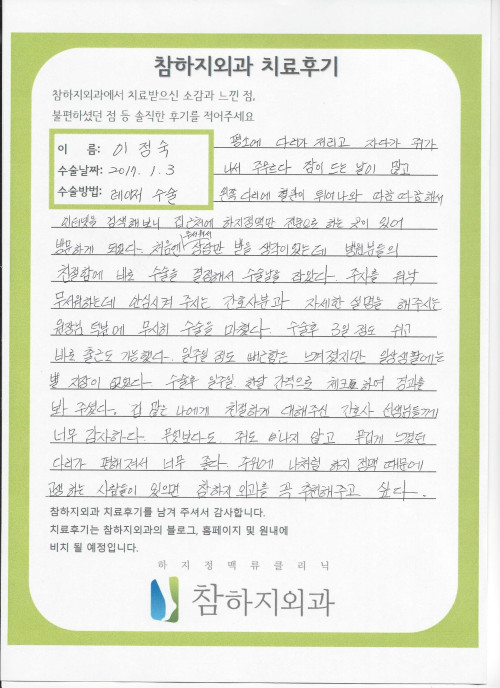 참하지외과 치료후기
참하지외과에서 치료받으신 소감과 느낀 점,
불편하셨던 점 등 솔직한 후기를 적어주세요
이 름: 이 정 숙
수술날짜: 2019. 1. 3
수술방법: 레이저 수술
평소에 다리가 저리고 자다가 쥐가
나서 주무르다 잠이 드는 날이 많고
왼쪽 다리에 혈관이 튀어나와 따끔따끔해서
인터넷을 검색해보니 집근처에 하지정맥만 전문으로 하는 곳이 있어
방문하게 되었다. 처음엔 상담만 받을 생각이었는데 병원님들의
친절함에 바로 수술을 결정해서 수술날을 잡았다. 주사를 워낙
무서워하는데 안심시켜 주시는 간호사분과 자세한 설명을 해주시는
원장님 덕분에 무사히 수술을 마쳤다. 수술후 3일 정도 쉬고
바로 출근도 가능했다. 일주일 정도 뻐근함은 느껴졌지만 일상생활에는
별 지장이 없었다. 수술후 일주일 한달 간격으로 체크를 하여 경과를
봐 주셨다. 겁 많은 나에게 친절하게 대해주신 간호사 선생님들께
너무 감사하다. 무엇보다도 쥐도 안나지 않고 무겁게 느꼈던
다리가 편해져서 너무 좋다. 주위에 나처럼 하지 정맥 때문에
고생 하는 사람들이 있으면 참하지 외과를 꼭 추천해주고 싶다.
참하지외과 치료후기를 남겨 주셔서 감사합니다.
치료후기는 참하지외과의 블로그, 홈페이지 및 원내에
비치 될 예정입니다.
하지정맥류클리닉
참하지외과